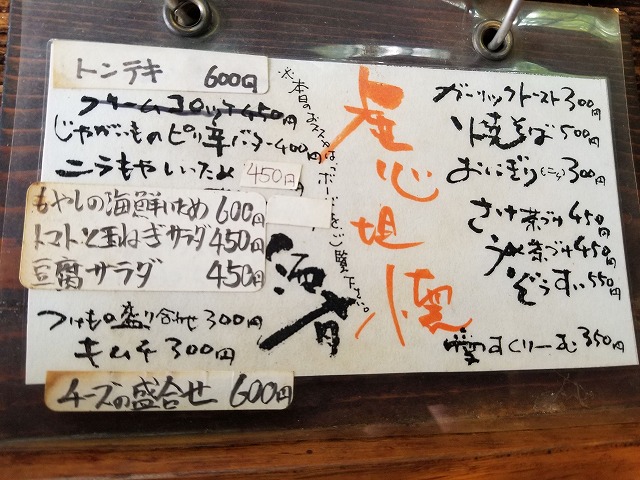 トンテキ 600円
クリームコロッケ 450円
じゃがいものピリ辛バター 400円
ニラもやしいため 450円
もやしの海鮮いため 600円
トマトと玉ねぎサラダ 450円
豆腐サラダ 450円
つけもの盛り合せ 300円
キムチ 300円
チーズの盛合せ 600円
※本日のおススメは、ボードをご覧下さい。
酒肴
虚心坦懐
ガーリックトースト 300円
ソース焼そば 500円
おにぎり(二ケ) 300円
さけ茶づけ 450円
うめ茶づけ 450円
ぞうすい 550円
あいすくりーむ 350円